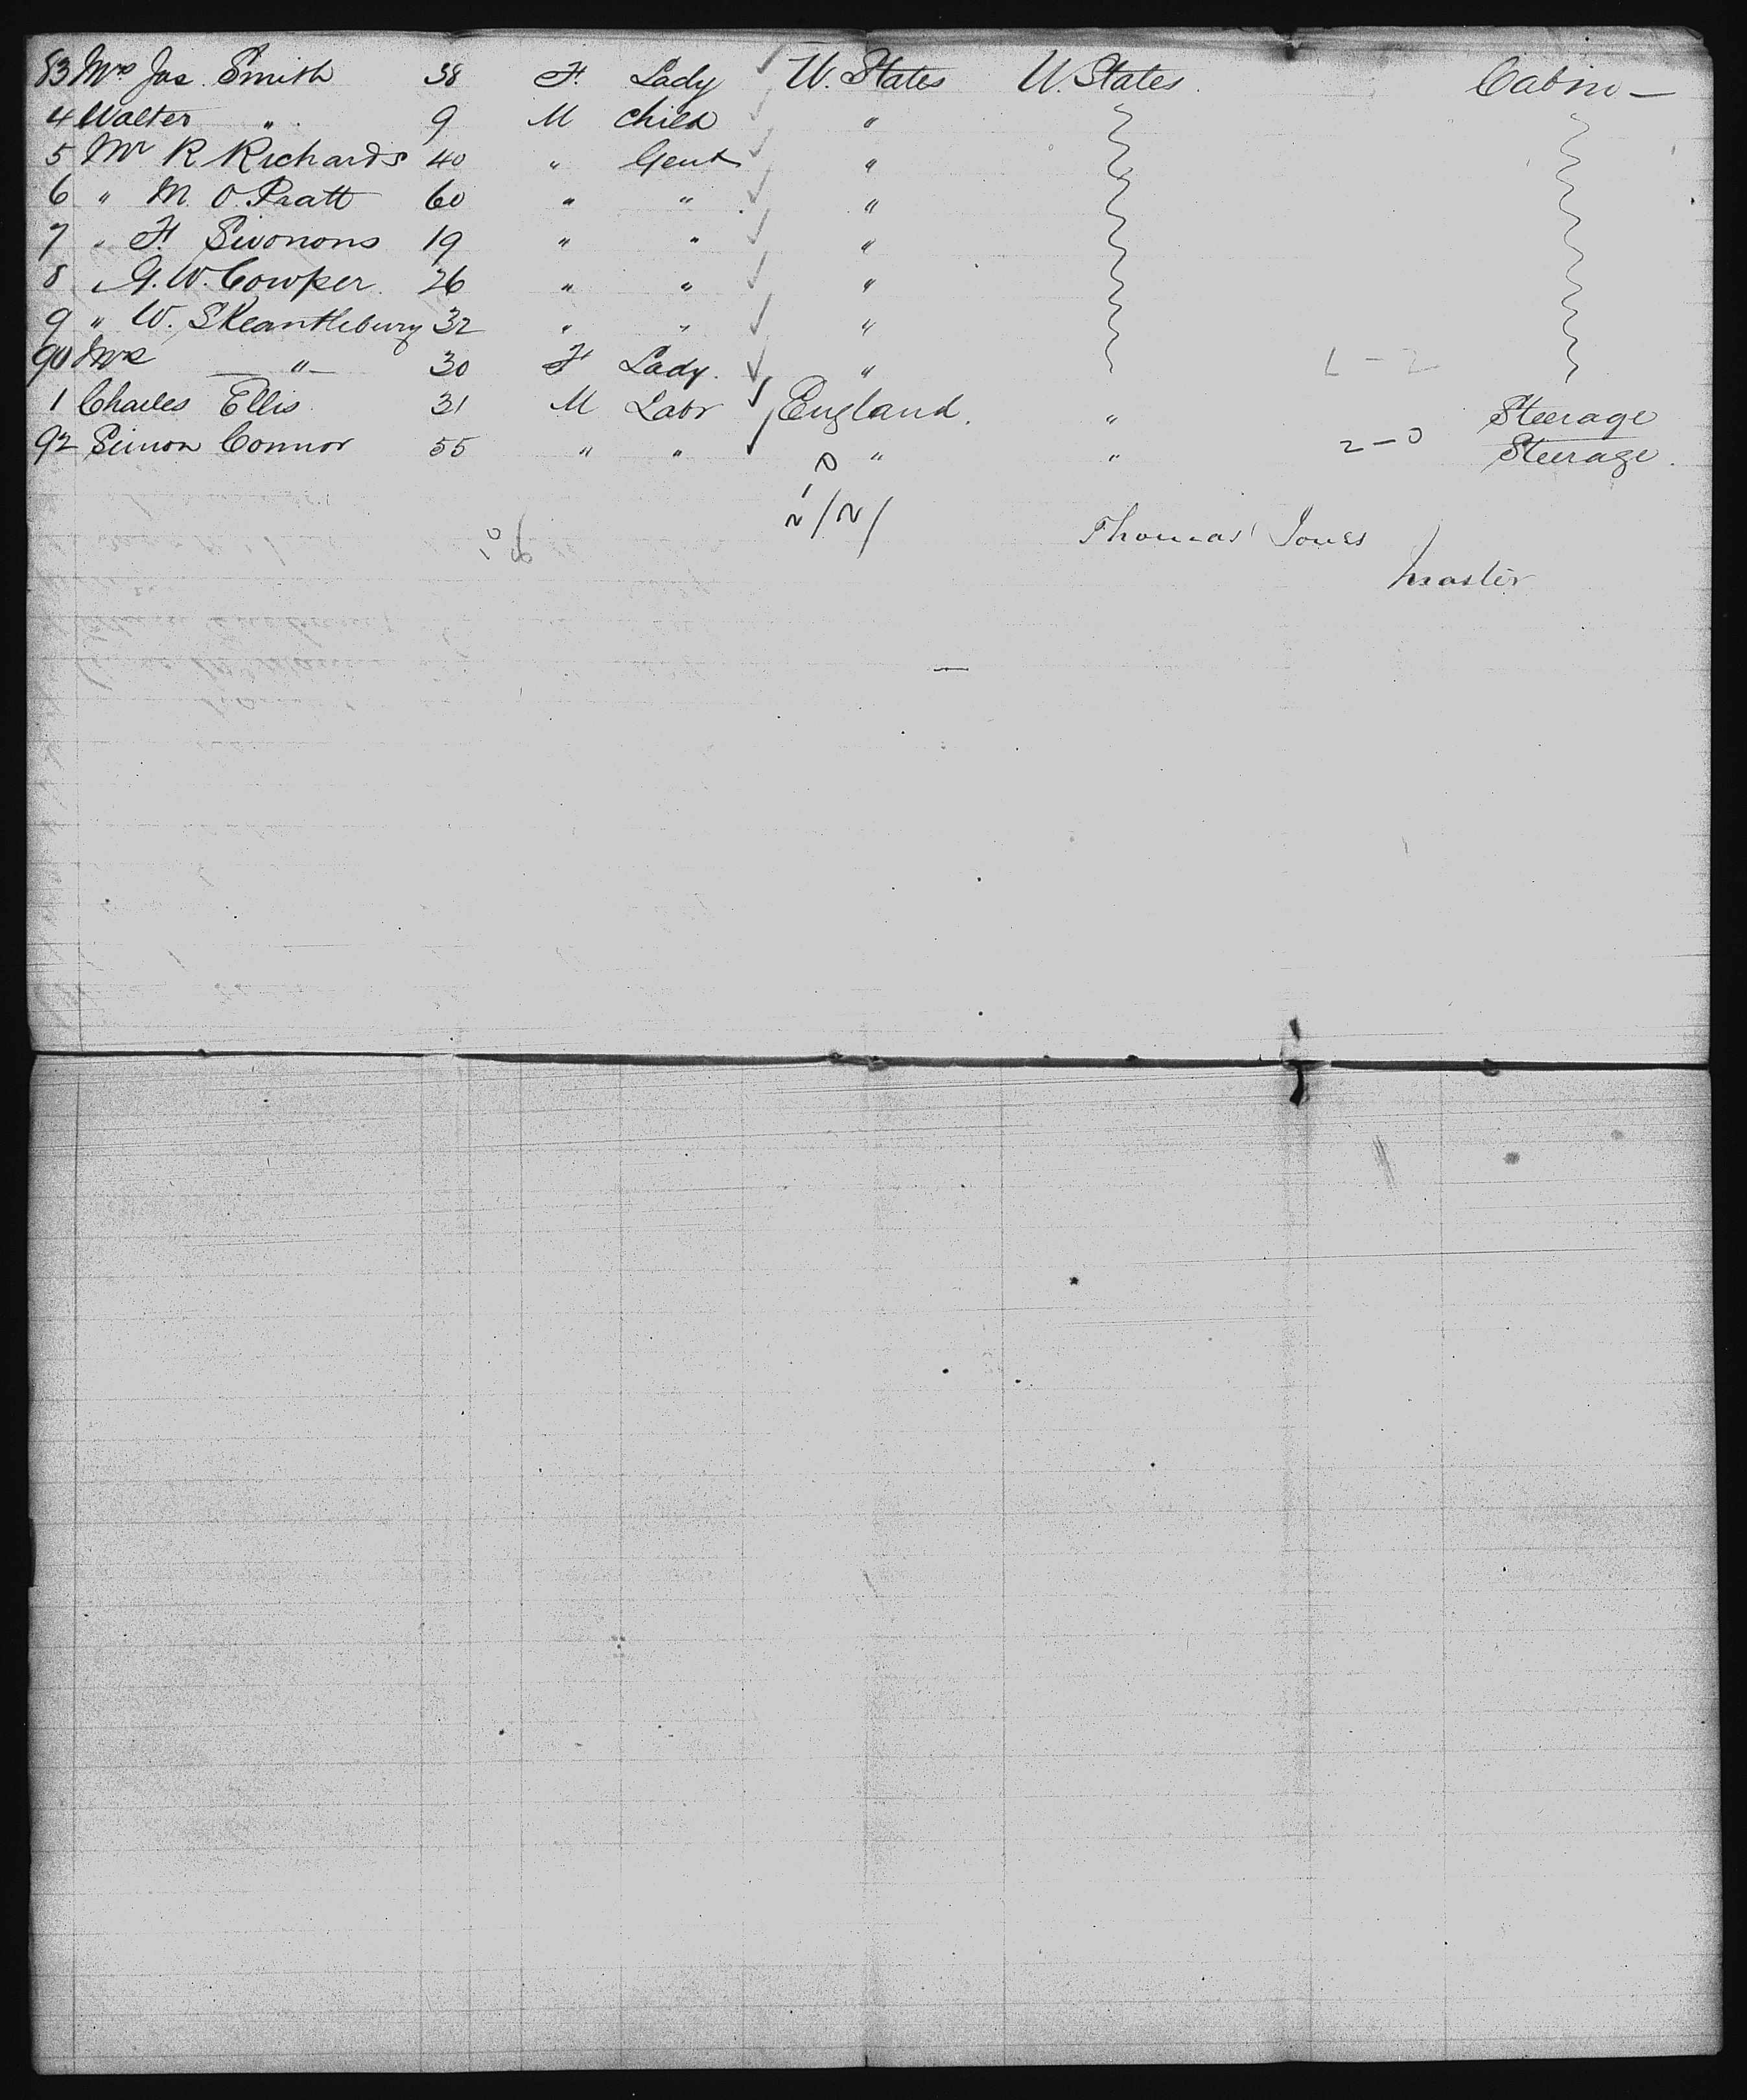 83 Mrs Jas. Smith 38 F. Lady U. States U. States. Cabin —
4 Walter " 9 M Child "
5 Mr R Richards 40 " Gent "
6 " M. O. Pratt 60 " " "
7 " F. Sivonons 19 " " "
8 " G. W. Cowper. 26 " " "
9 " W. Skeanthebury 32 " " "
90 Mrs — " — 30 F Lady. "
1 Charles Ellis. 31 M Labr England. " Steerage
92 Simon Connor 55 " " " " 2-0 Steerage.
Thomas Jones
Master